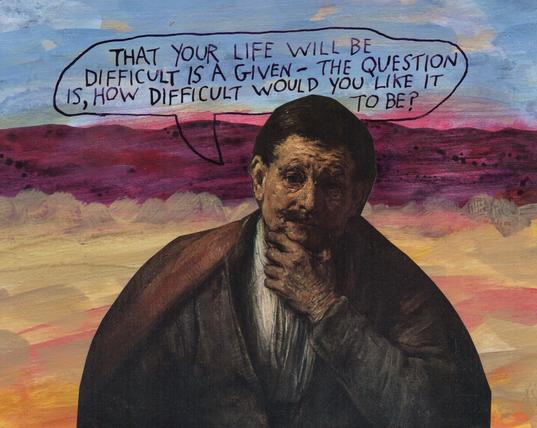 THAT YOUR LIFE WILL BE
DIFFICULT IS A GIVEN - THE QUESTION
IS, HOW DIFFICULT WOULD YOU LIKE IT
TO BE?